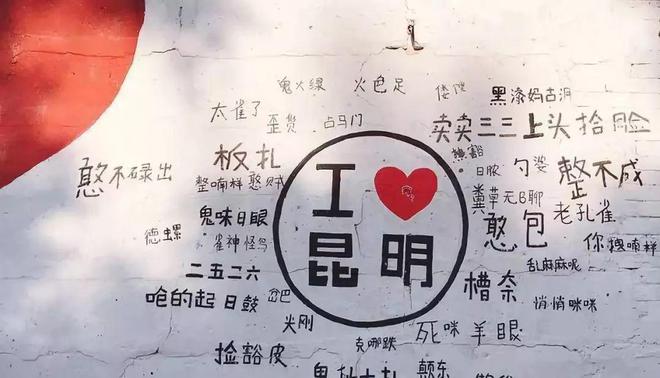 鬼火绿
火色足
偻陧
黑漆妈古洞
太雀了
歪货
占马门
卖卖三三上头拾脸
憨不碌出
板扎
整喃样憨贼
I
昆明
日脓
勺婆
憨不成
粪草
无日聊
老孔雀
鬼味日眼
憨包
你想喃样
德螺
雀神怪鸟
乱麻麻呢
二五二六
槽奈
悄悄咪咪
呛的起
日鼓
岔巴
尖刚
死咪羊眼
捡豁皮
克哪跌
鬼扯大扎
颠东